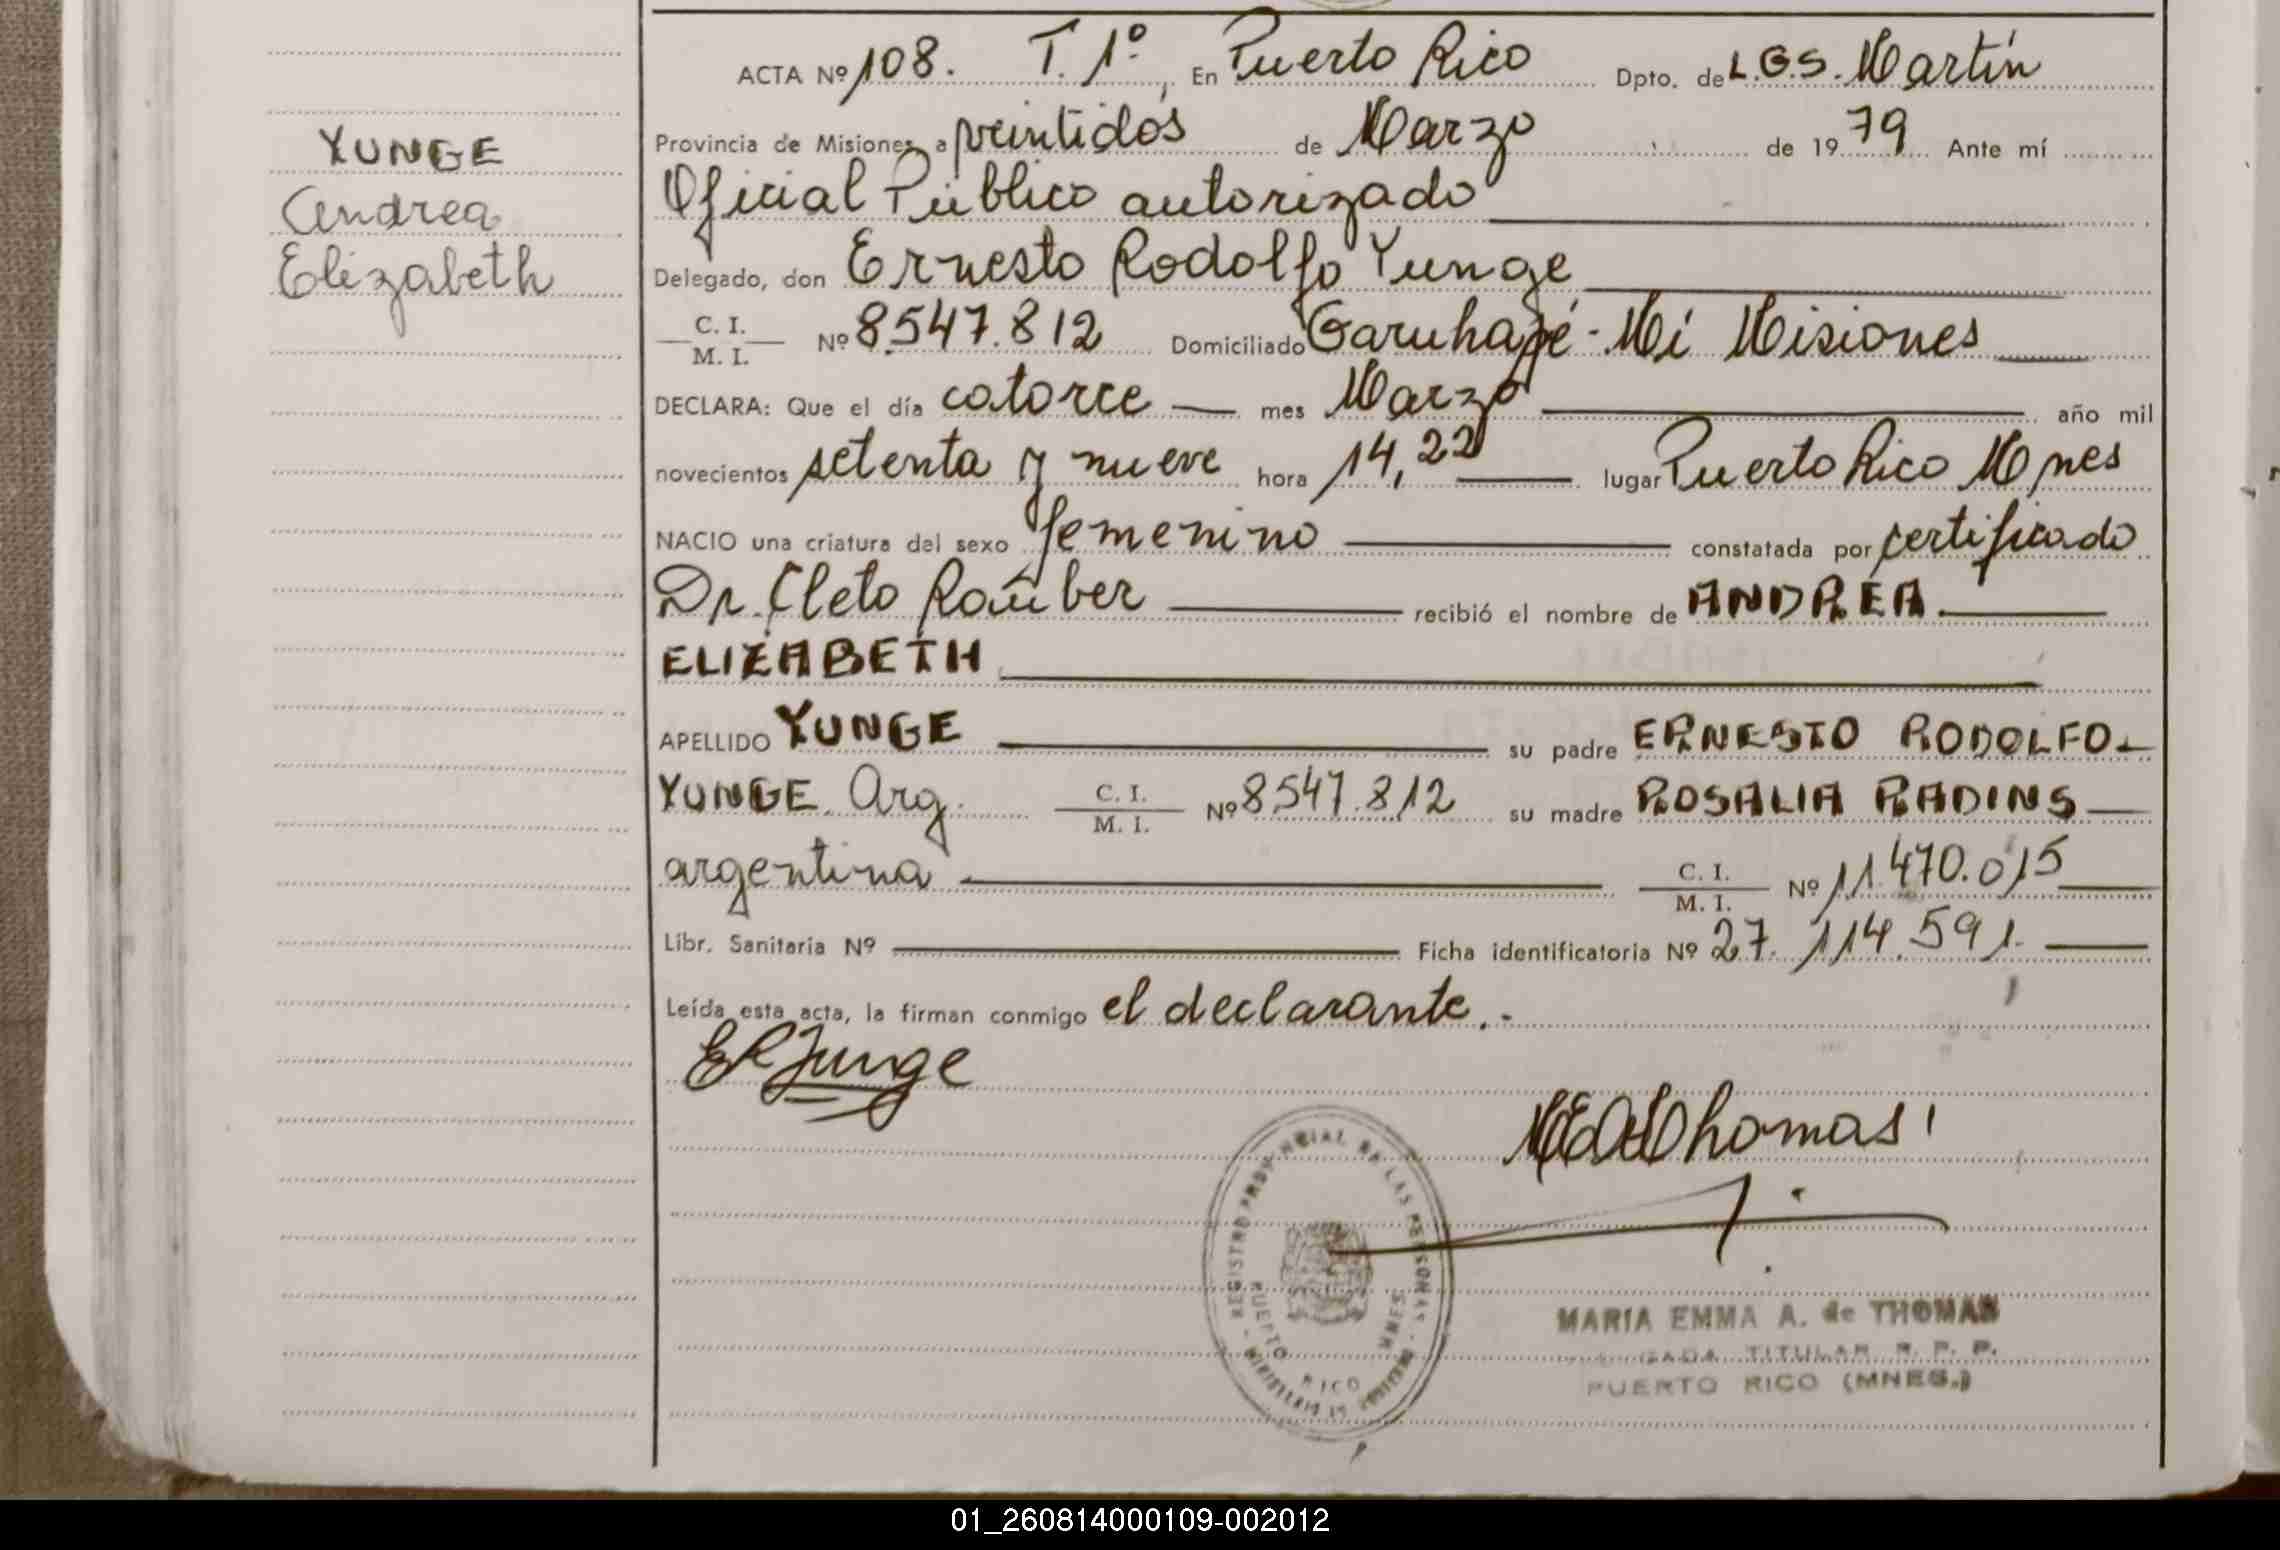 YUNGE
Andrea
Elizabeth
ACTA Nº 108. T. 1º, En Puerto Rico Dpto. de L.G.S. Martín
Provincia de Misiones, a veintidós de Marzo de 1979 Ante mí
Oficial Público autorizado
Delegado, don Ernesto Rodolfo Yunge
C. I.
M. I. Nº 8.547.812 Domiciliado Garuhapé-Mí Misiones
DECLARA: Que el día catorce mes Marzo año mil
novecientos setenta y nueve hora 14,22 lugar Puerto Rico Mnes
NACIO una criatura del sexo femenino constatada por certificado
Dr. Cleto Raúber recibió el nombre de ANDREA
ELIZABETH
APELLIDO YUNGE su padre ERNESTO RODOLFO
YUNGE Arg. C. I.
M. I. Nº 8.547.812 su madre ROSALIA RADINS
argentina C. I.
M. I. Nº 11.470.015
Libr. Sanitaria Nº Ficha identificatoria Nº 27.114.591.
Leída esta acta, la firman conmigo el declarante.-
ERJunge
MEAdThomas
REGISTRO PROVINCIAL DE LAS PERSONAS
PUERTO RICO MNES.
MARIA EMMA A. de THOMAS
TITULAR R. P. P.
PUERTO RICO (MNES.)
01_260814000109-002012